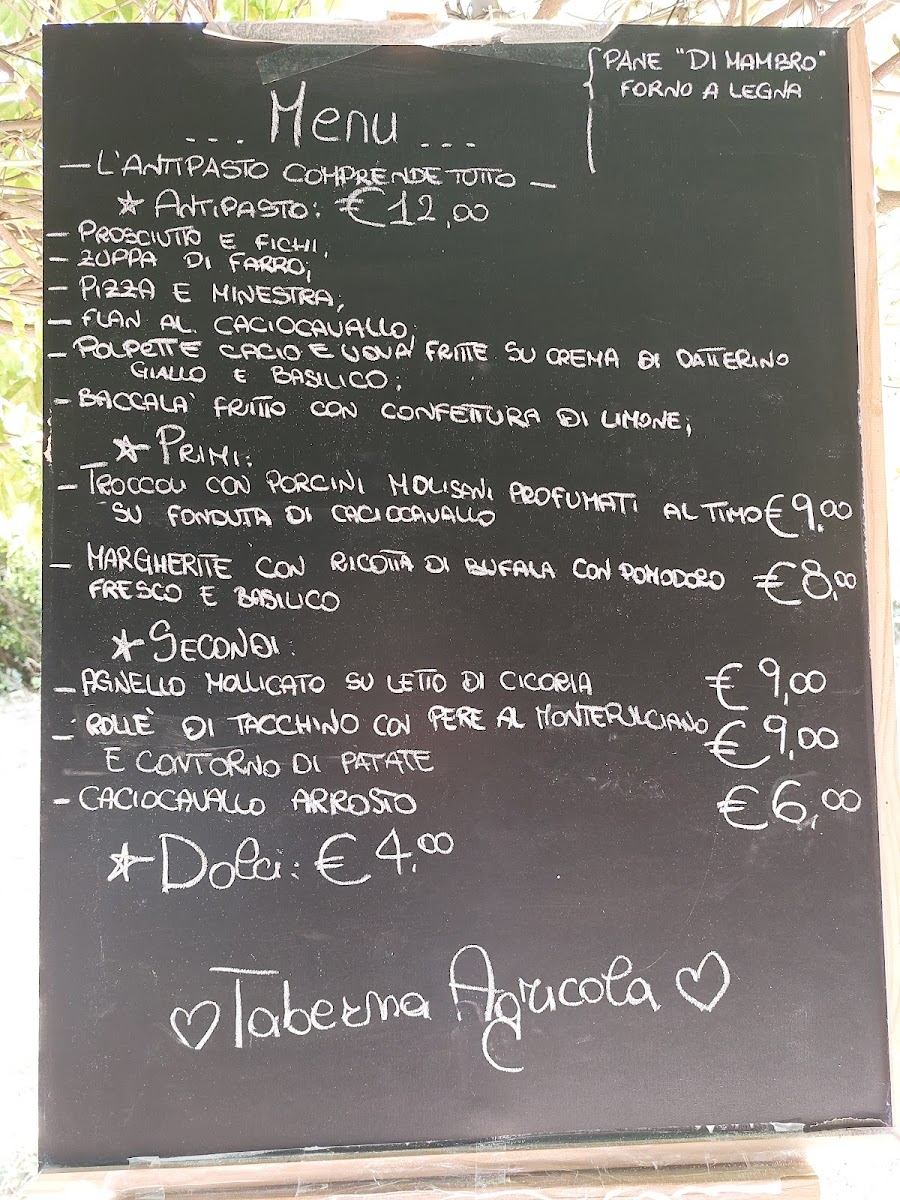 PANE "DI MAMBRO"
FORNO A LEGNA
... Menu ...
— L'ANTIPASTO COMPRENDE TUTTO —
★ ANTIPASTO: € 12,00
- PROSCIUTTO E FICHI;
- ZUPPA DI FARRO;
- PIZZA E MINESTRA;
- FLAN AL CACIOCAVALLO;
- POLPETTE CACIO E UOVA FRITTE SU CREMA DI DATTERINO
GIALLO E BASILICO;
- BACCALA' FRITTO CON CONFETTURA DI LIMONE;
★ PRIMI:
- TROCCOLI CON PORCINI MOLISANI PROFUMATI AL TIMO € 9,00
SU FONDUTA DI CACIOCAVALLO
- MARGHERITE CON RICOTTA DI BUFALA CON POMODORO € 8,00
FRESCO E BASILICO
★ SECONDI:
- AGNELLO MOLLICATO SU LETTO DI CICORIA € 9,00
- ROLLE' DI TACCHINO CON PERE AL MONTEPULCIANO € 9,00
E CONTORNO DI PATATE
- CACIOCAVALLO ARROSTO € 6,00
★ Dolci: € 4,00
♡ Taberna Agricola ♡